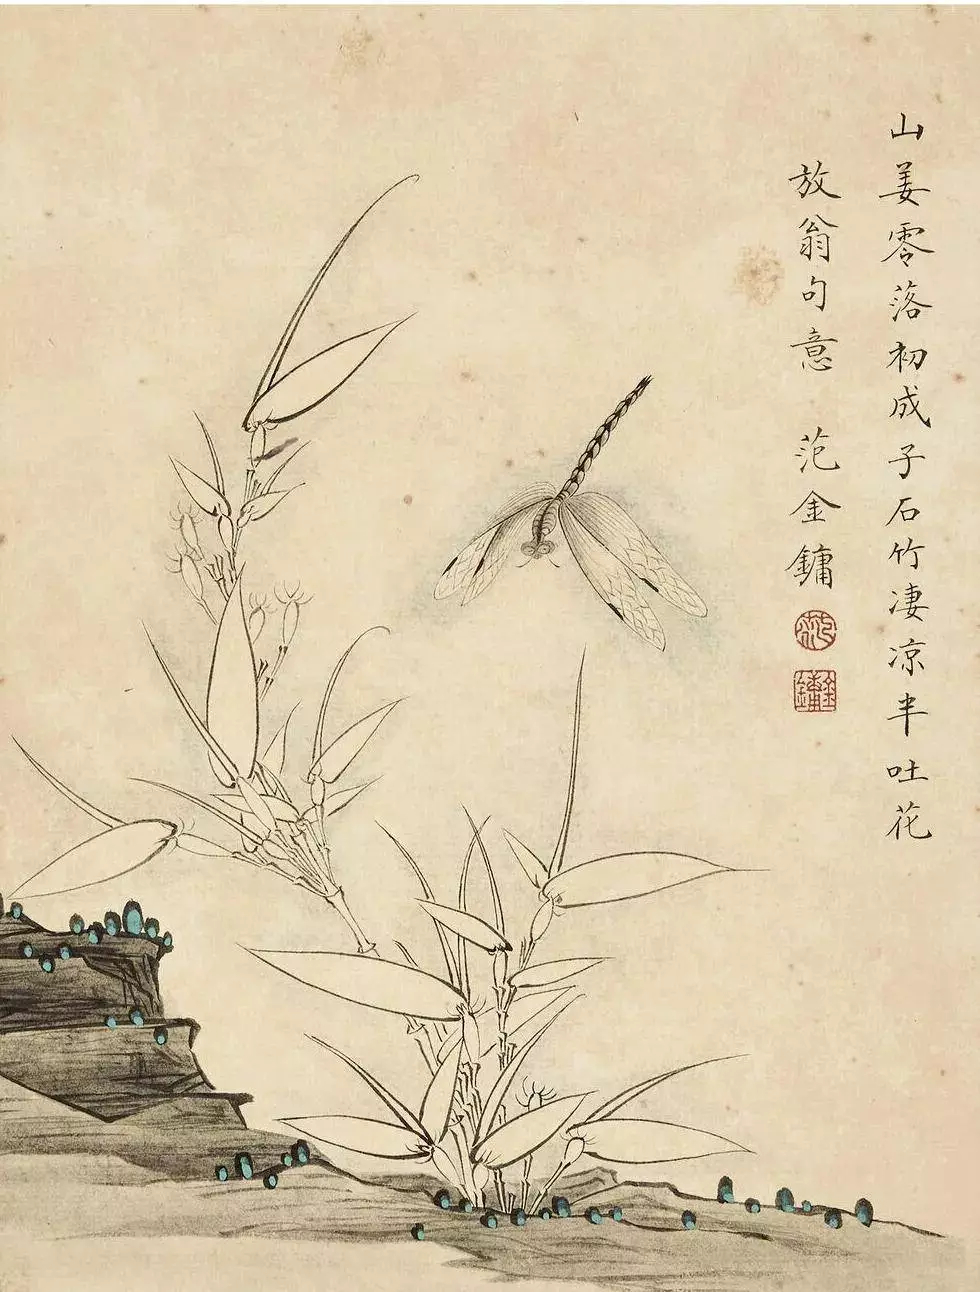 山姜零落初成子石竹凄凉半吐花
放翁句意 范金鏞
范
金鏞